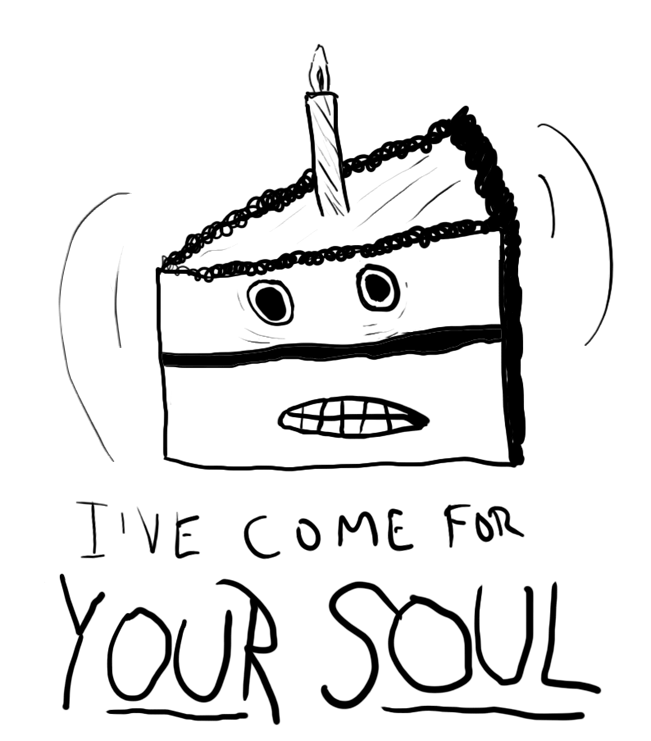 I'VE COME FOR
YOUR SOUL